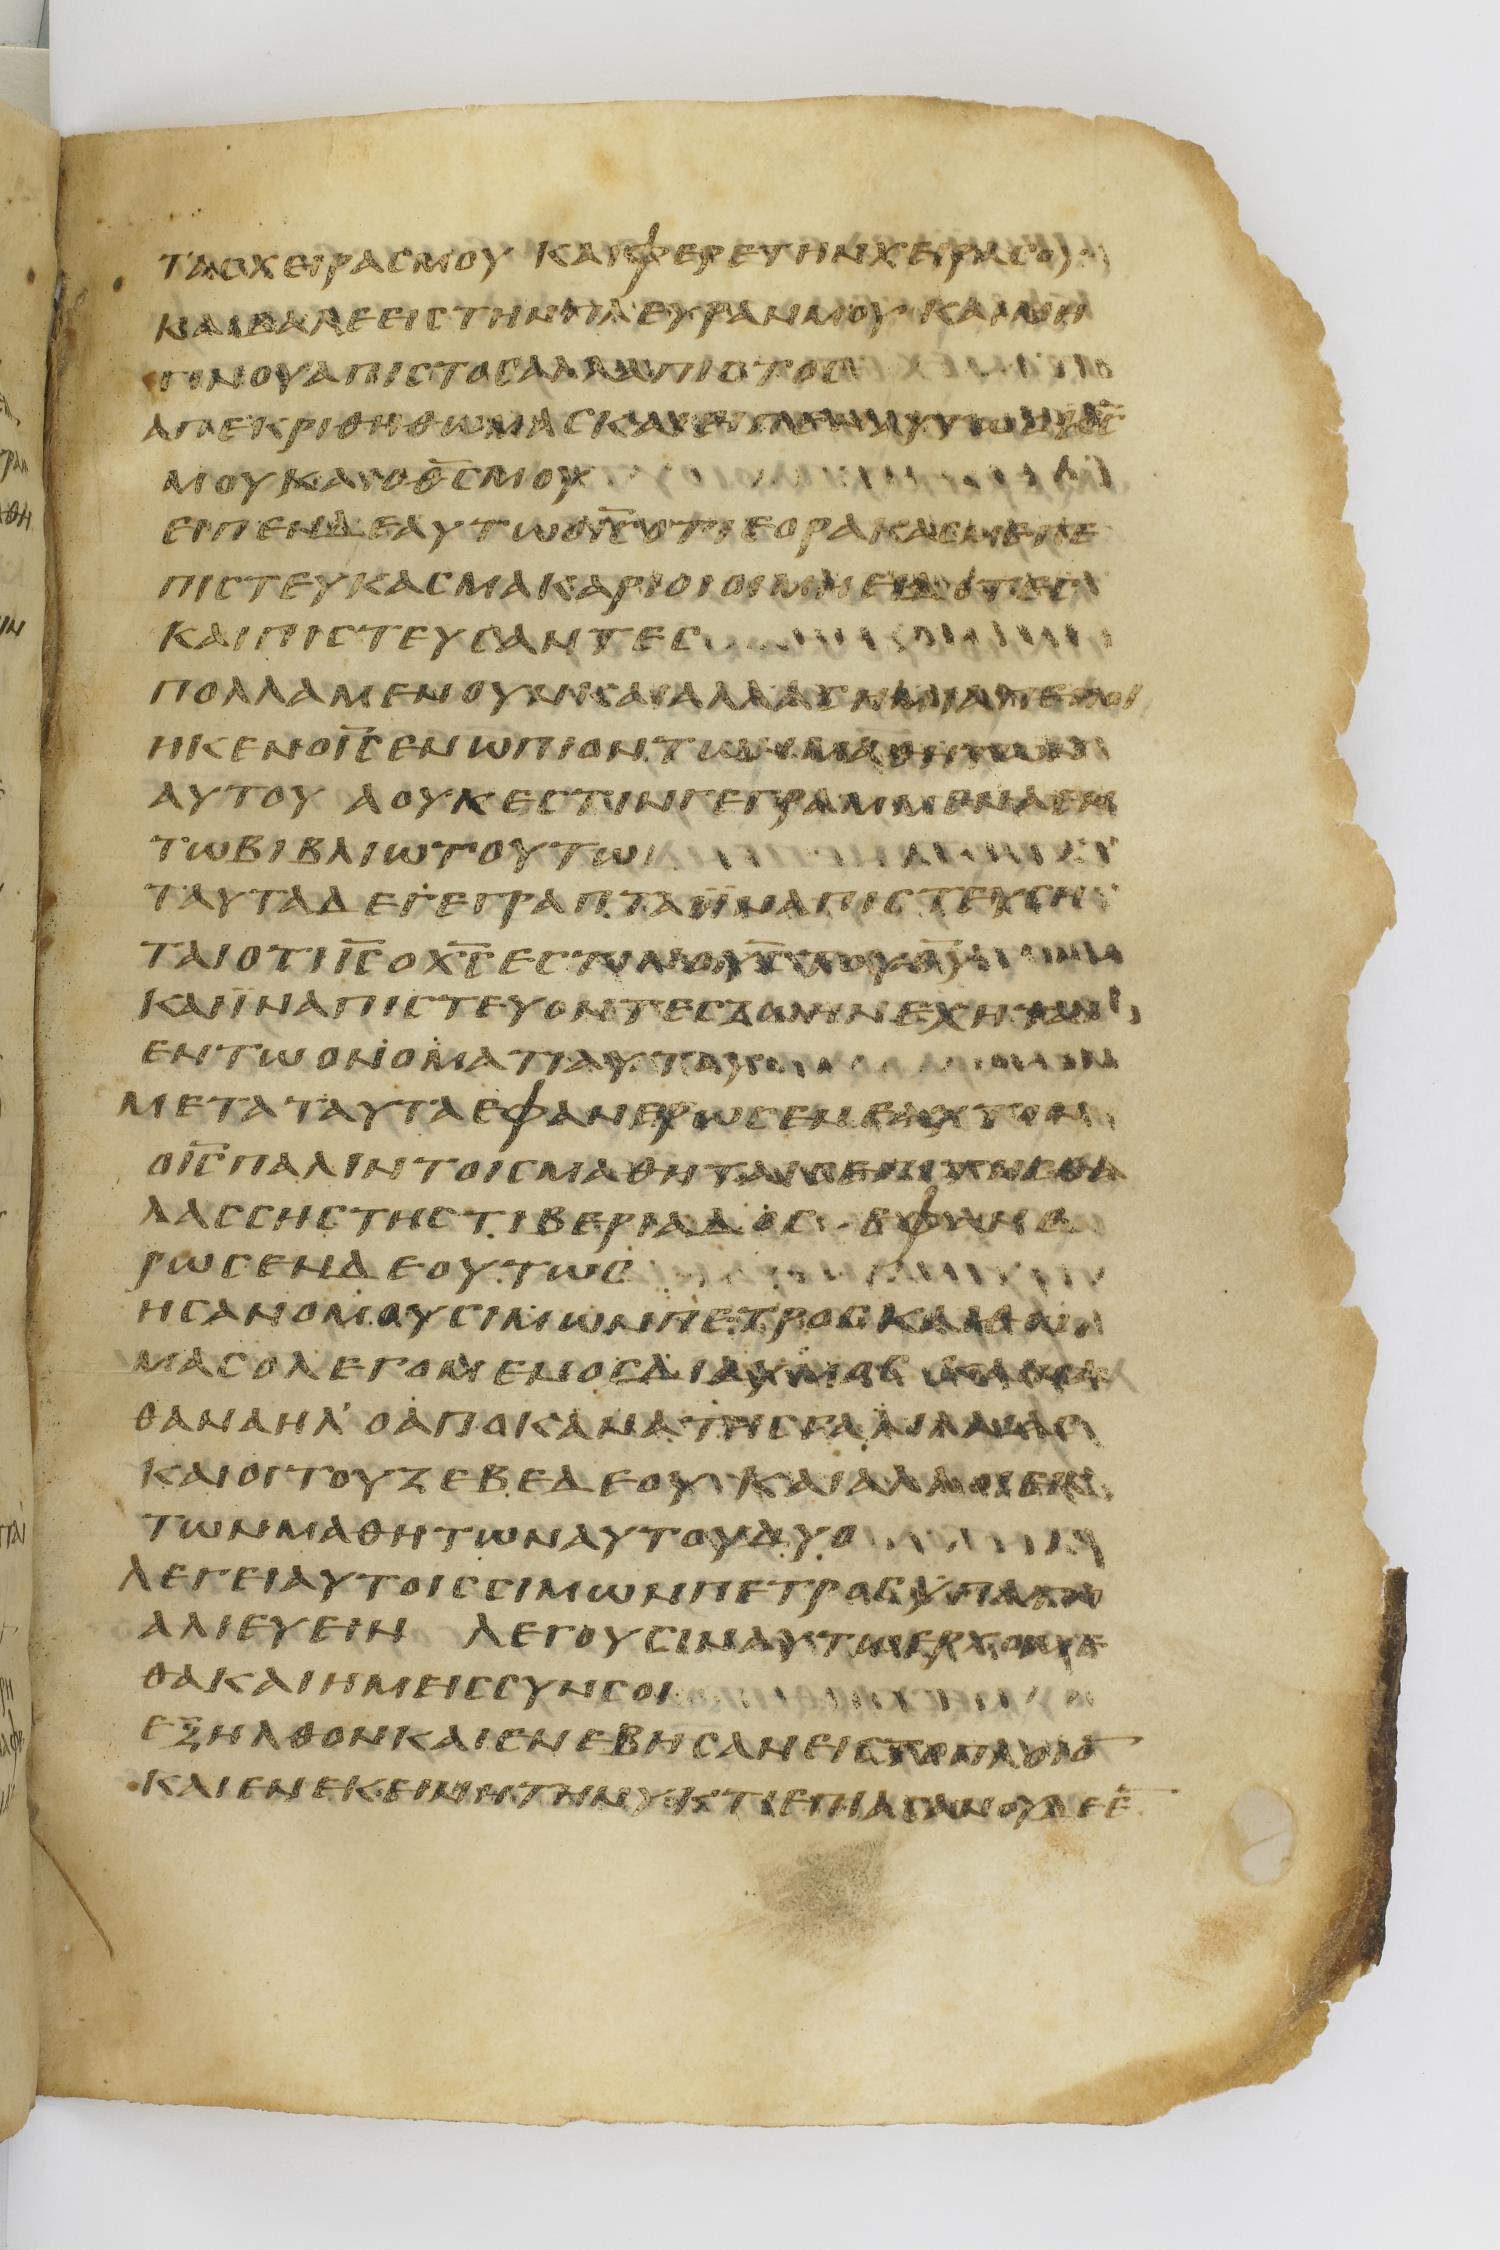 ΤΑΣΧΕΙΡΑΣΜΟΥ ΚΑΙΦΕΡΕΤΗΝΧΕΙΡΑΣΟΥ
ΚΑΙΒΑΛΕΕΙΣΤΗΝΠΛΕΥΡΑΝΜΟΥ ΚΑΙΜΗ
ΓΙΝΟΥΑΠΙΣΤΟΣΑΛΛΑΠΙΣΤΟΣ
ΑΠΕΚΡΙΘΗΘΩΜΑΣΚΑΙΕΙΠΕΝΑΥΤΩ
ΜΟΥΚΑΙΟΘ̅Σ̅ΜΟΥ
ΕΙΠΕΝΔΕΑΥΤΩΟΙ̅Σ̅ΟΤΙΕΟΡΑΚΑΣΜΕΠΕ
ΠΙΣΤΕΥΚΑΣΜΑΚΑΡΙΟΙΟΙΜΗΕΙΔΟΝΤΕΣ
ΚΑΙΠΙΣΤΕΥΣΑΝΤΕΣ
ΠΟΛΛΑΜΕΝΟΥΝΚΑΙΑΛΛΑΣΗΜΙΑΕΠΟΙ
ΗΚΕΝΟΙ̅Σ̅ΕΝΩΠΙΟΝΤΩΝΜΑΘΗΤΩΝ
ΑΥΤΟΥ ΑΟΥΚΕΣΤΙΝΓΕΓΡΑΜΜΕΝΑΕΝ
ΤΩΒΙΒΛΙΩΤΟΥΤΩ
ΤΑΥΤΑΔΕΓΕΓΡΑΠΤΑΙΪΝΑΠΙΣΤΕΥΣΗ
ΤΑΙΟΤΙΙ̅Σ̅ΟΧ̅Σ̅ΕΣΤΙΝΟΥ̅Σ̅ΤΟΥΘ̅Υ̅
ΚΑΙΪΝΑΠΙΣΤΕΥΟΝΤΕΣΖΩΗΝΕΧΗΤΑΙ
ΕΝΤΩΟΝΟΜΑΤΙΑΥΤΟΥ
ΜΕΤΑΤΑΥΤΑΕΦΑΝΕΡΩΣΕΝΕΑΥΤΟΝ
ΟΙ̅Σ̅ΠΑΛΙΝΤΟΙΣΜΑΘΗΤΑΙΣΕΠΙΤΗΣΘΑ
ΛΑΣΣΗΣΤΗΣΤΙΒΕΡΙΑΔΟΣ ΕΦΑΝΕ
ΡΩΣΕΝΔΕΟΥΤΩΣ
ΗΣΑΝΟΜΟΥΣΙΜΩΝΠΕΤΡΟΣΚΑΙΘΩ
ΜΑΣΟΛΕΓΟΜΕΝΟΣΔΙΔΥΜΟΣ ΚΑΙΝΑ
ΘΑΝΑΗΛ'ΟΑΠΟΚΑΝΑΤΗΣΓΑΛΙΛΑΙΑΣ
ΚΑΙΟΙΤΟΥΖΕΒΕΔΕΟΥ ΚΑΙΑΛΛΟΙΕΚ
ΤΩΝΜΑΘΗΤΩΝΑΥΤΟΥΔΥΟ
ΛΕΓΕΙΑΥΤΟΙΣΣΙΜΩΝΠΕΤΡΟΣΥΠΑΓΩ
ΑΛΙΕΥΕΙΝ ΛΕΓΟΥΣΙΝΑΥΤΩΕΡΧΟΜΕ
ΘΑΚΑΙΗΜΕΙΣΣΥΝΣΟΙ
ΕΞΗΛΘΟΝΚΑΙΕΝΕΒΗΣΑΝΕΙΣΤΟΠΛΟΙΟ̅
ΚΑΙΕΝΕΚΕΙΝΗΤΗΝΥΚΤΙΕΠΙΑΣΑΝΟΥΔΕΕ̅